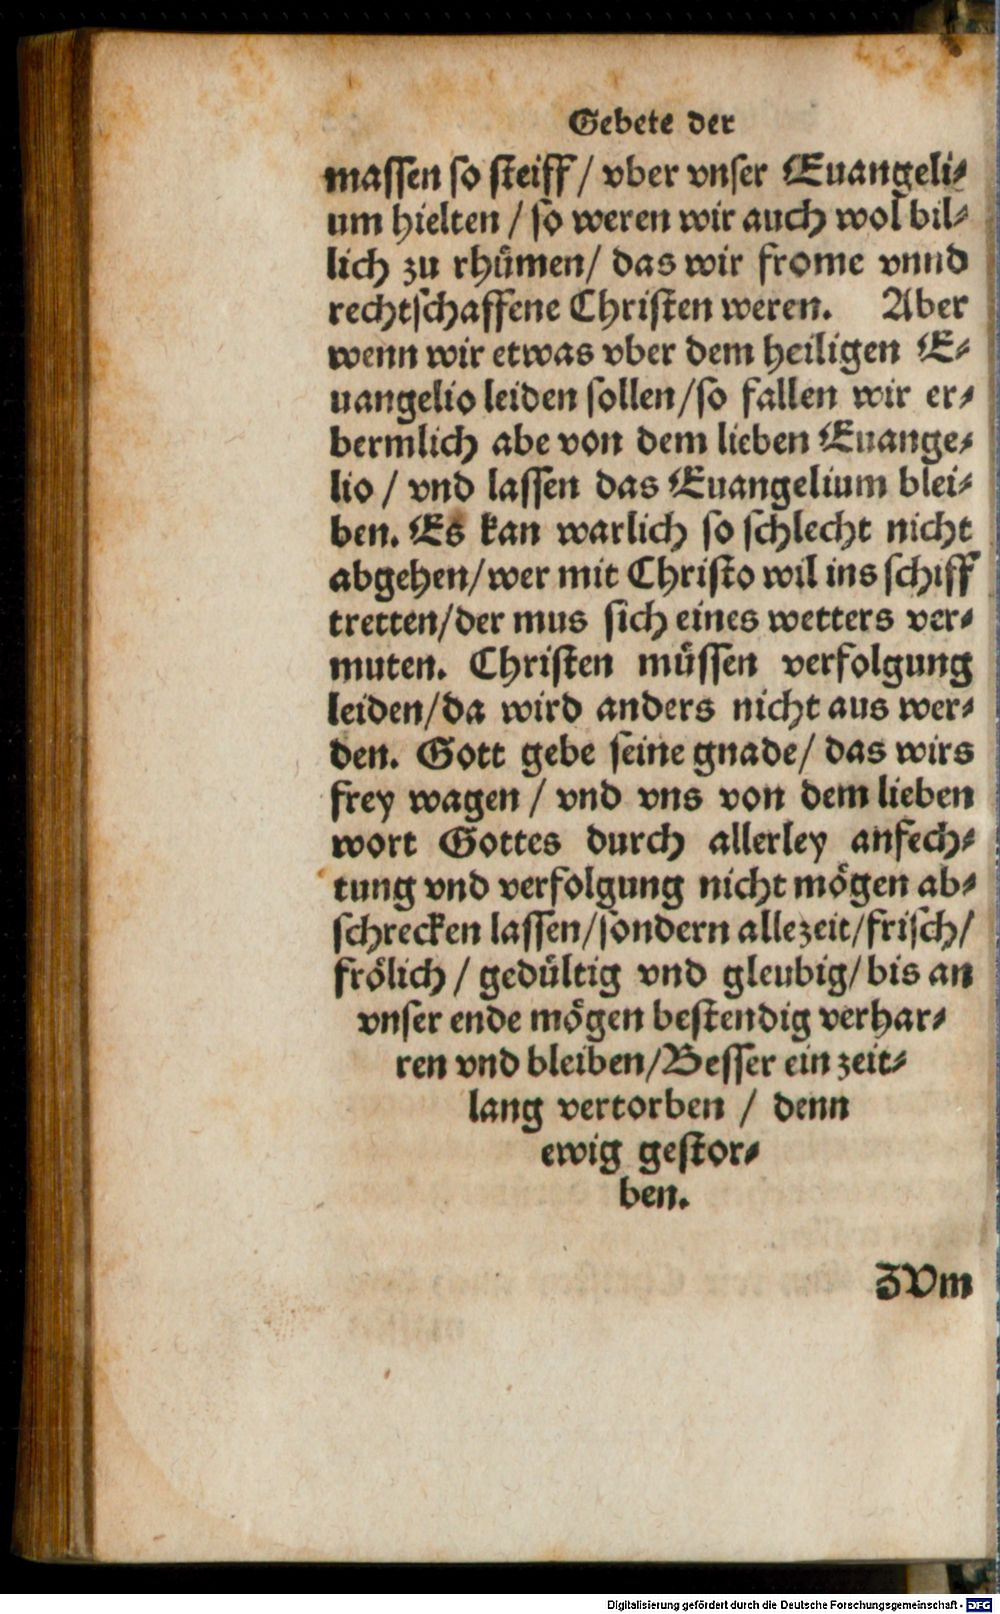 Gebete der
massen so steiff / vber vnser Euangeli⸗
um hielten / so weren wir auch wol bil⸗
lich zu rhuͤmen / das wir frome vnnd
rechtschaffene Christen weren. Aber
wenn wir etwas vber dem heiligen E⸗
uangelio leiden sollen / so fallen wir er⸗
bermlich abe von dem lieben Euange⸗
lio / vnd lassen das Euangelium blei⸗
ben. Es kan warlich so schlecht nicht
abgehen / wer mit Christo wil ins schiff
tretten / der mus sich eines wetters ver⸗
muten. Christen muͤssen verfolgung
leiden / da wird anders nicht aus wer⸗
den. Gott gebe seine gnade / das wirs
frey wagen / vnd vns von dem lieben
wort Gottes durch allerley anfech⸗
tung vnd verfolgung nicht moͤgen ab⸗
schrecken lassen / sondern allezeit / frisch /
froͤlich / geduͤltig vnd gleubig / bis an
vnser ende moͤgen bestendig verhar⸗
ren vnd bleiben / Besser ein zeit⸗
lang vertorben / denn
ewig gestor⸗
ben.
ZVm
Digitalisierung gefördert durch die Deutsche Forschungsgemeinschaft - DFG